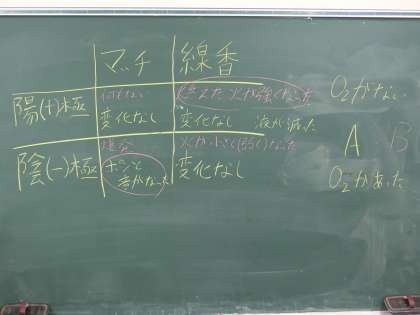 マッチ 線香
陽(+)極 何もない 燃えた火が強くなった O₂がない
変化なし 変化なし 液が減った
A B
陰(-)極 爆発 火が小さく(弱く)なった O₂があった
ポンと 変化なし
音がなった